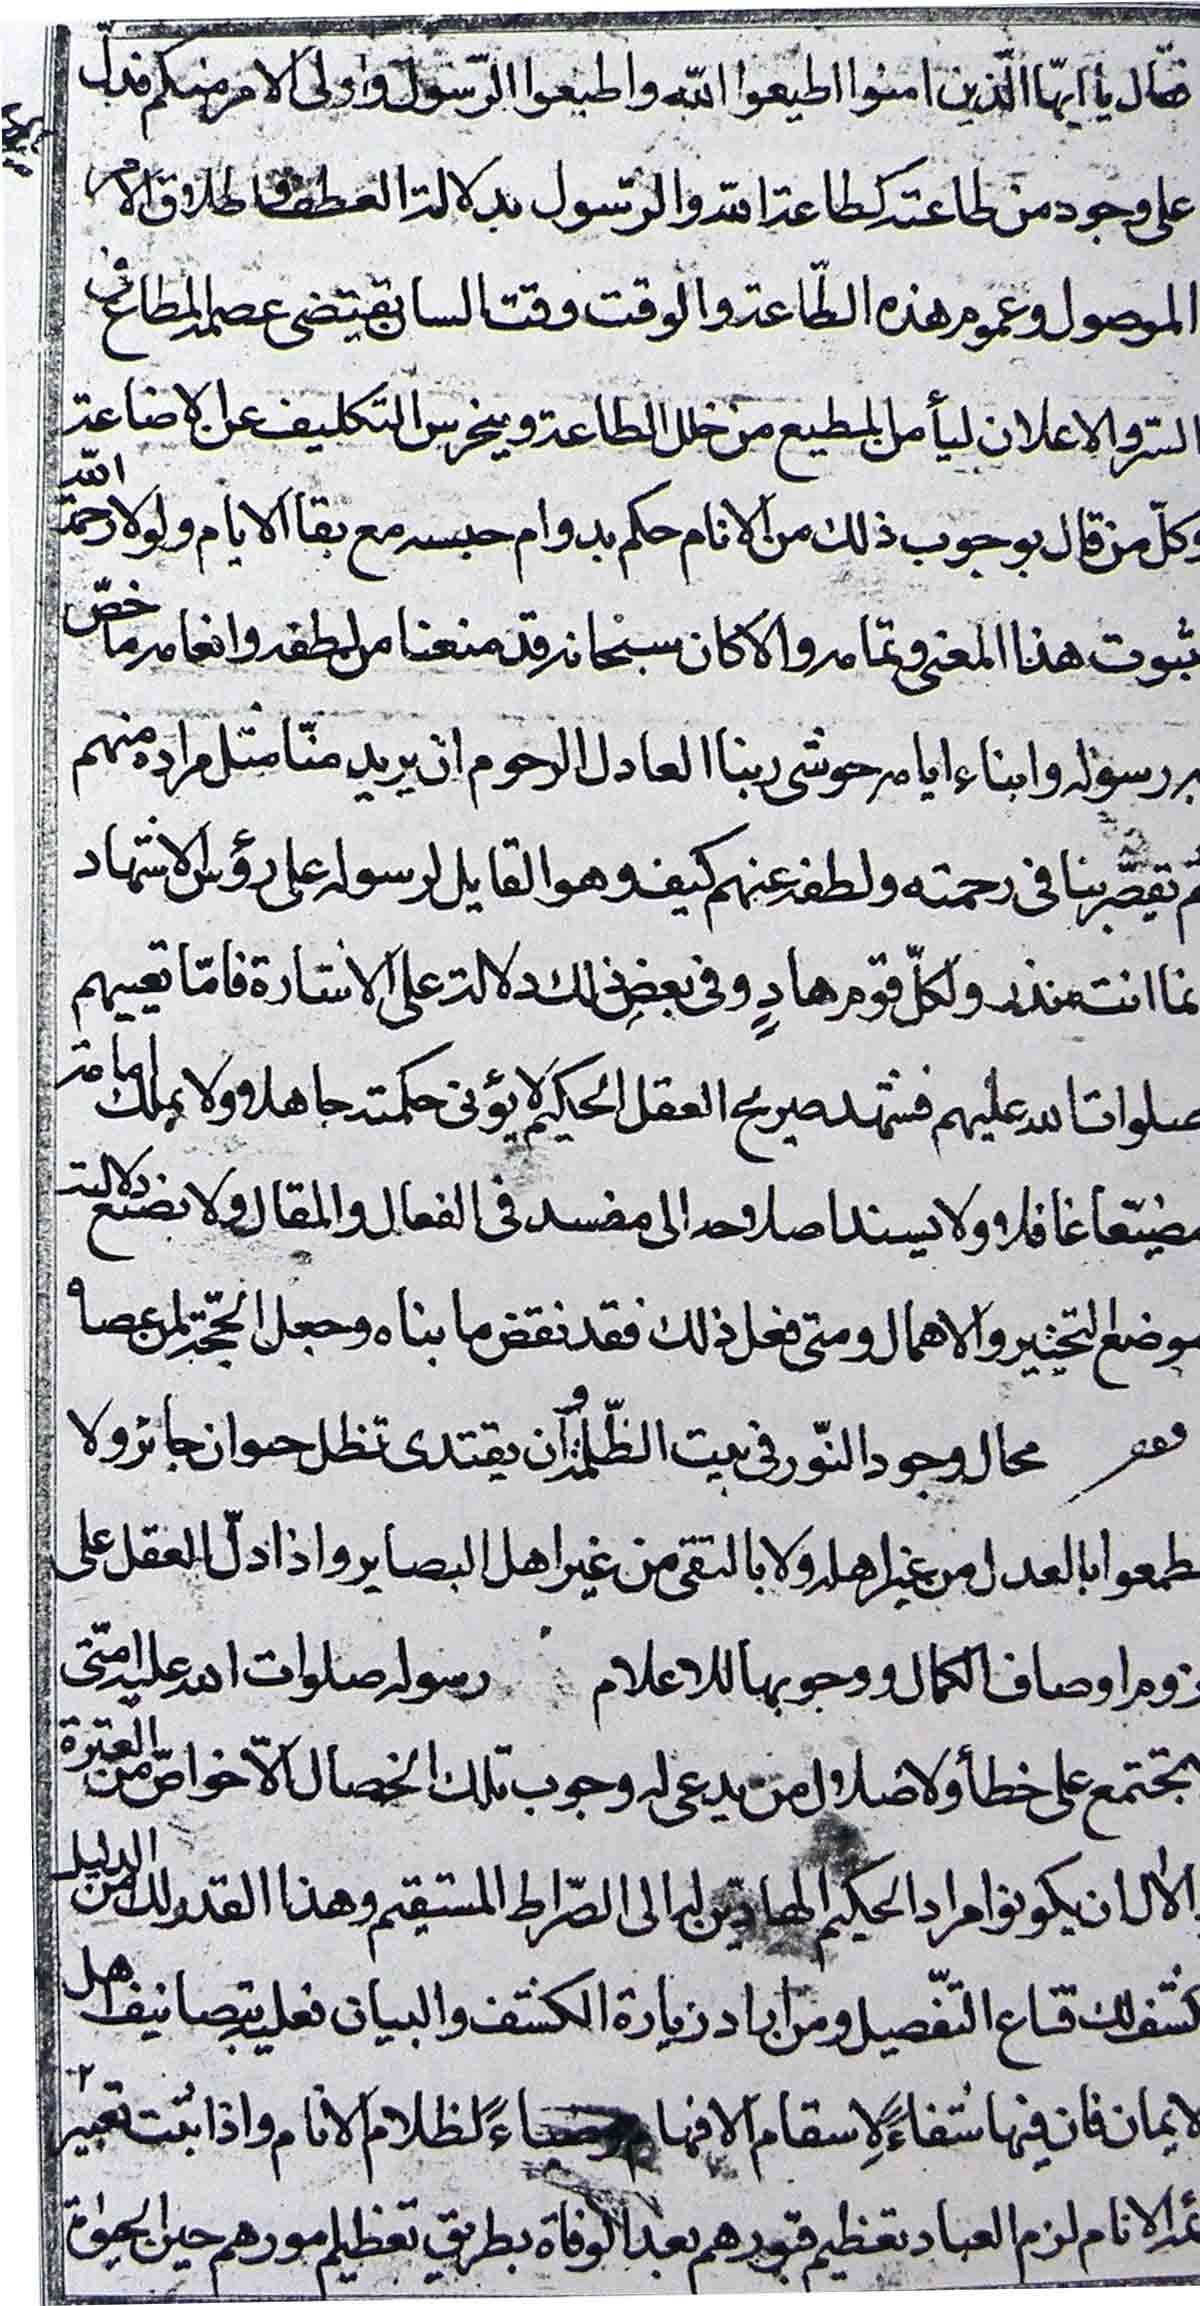 فقال يا ايها الّذين امنوا اطيعوا اللّه واطيعوا الرّسول واولى الامر منكم فدلّ
على وجود من طاعته كطاعة الله والرسول بدلالة العطف واطلاق الامر
الموصول وعموم هذه الطّاعة والوقت وقت السا يقتضى عصمة المطاع فى
السّر والاعلان ليأمن المطيع من خلل الطاعة ويخرس التكليف عن الاضاعة
وكلّ من قال بوجوب ذلك من الانام حكم بدوام حبسه مع بقا الايام ولولا رحمة اللّه
ثبوت هذا المعنى وتمامه والا كان سبحانه قد منعنا من لطفه وانعامه ما خصّ
به رسوله وابناء ايامه حوشى ربنا العادل الرحوم ان يريد منّا مثل مراده منهم
ثم يقصّر بنا فى رحمته ولطفه عنهم كيف وهو القايل لرسوله على رؤس الاشهاد
نما انت منذر ولكلّ قوم هادٍ وفى بعض ذلك دلالة على الاشارة فامّا تعيينهم
صلوات الله عليهم فشهد صريح العقل الحكيم لا يؤتى حكمته جاهلا ولا يملك امامة
مضيّعا غافلا ولا يسند اصلاحه الى مفسد فى الفعال والمقال ولا يضع دلالته
موضع التحيير والاهمال ومتى فعل ذلك فقد نقض ما بناه وجعل الحجّة لمن عصاه
محال وجود النّور فى بيت الظّلمة وان يقتدى تظل حوان جائز ولا
تطمعوا بالعدل من غير اهله ولا بالتقى من غير اهل البصاير واذا دلّ العقل على
لزوم اوصاف الكمال ووجوبها للاعلام رسوله صلوات الله عليه امّتى
لا تجتمع على خطأ ولا ضلال من يدعى له وجوب تلك الخصال الّا خواصّ من العترة
والال ان يكونوا مراد الحكيم الهاديّن له الى الصّراط المستقيم وهذا القدر لك من الدليل
كشف لك قناع التّفصيل ومن اراد زيادة الكشف والبيان فعليه بتصانيف اهل
الايمان فان فيها شفاءً لاسقام الافهام وضياءً لظلام الانام واذا ثبت تعيير
ئمة الانام لزم العباد تعظيم قبورهم بعد الوفاة بطريق تعظيم امورهم حين الحيوة